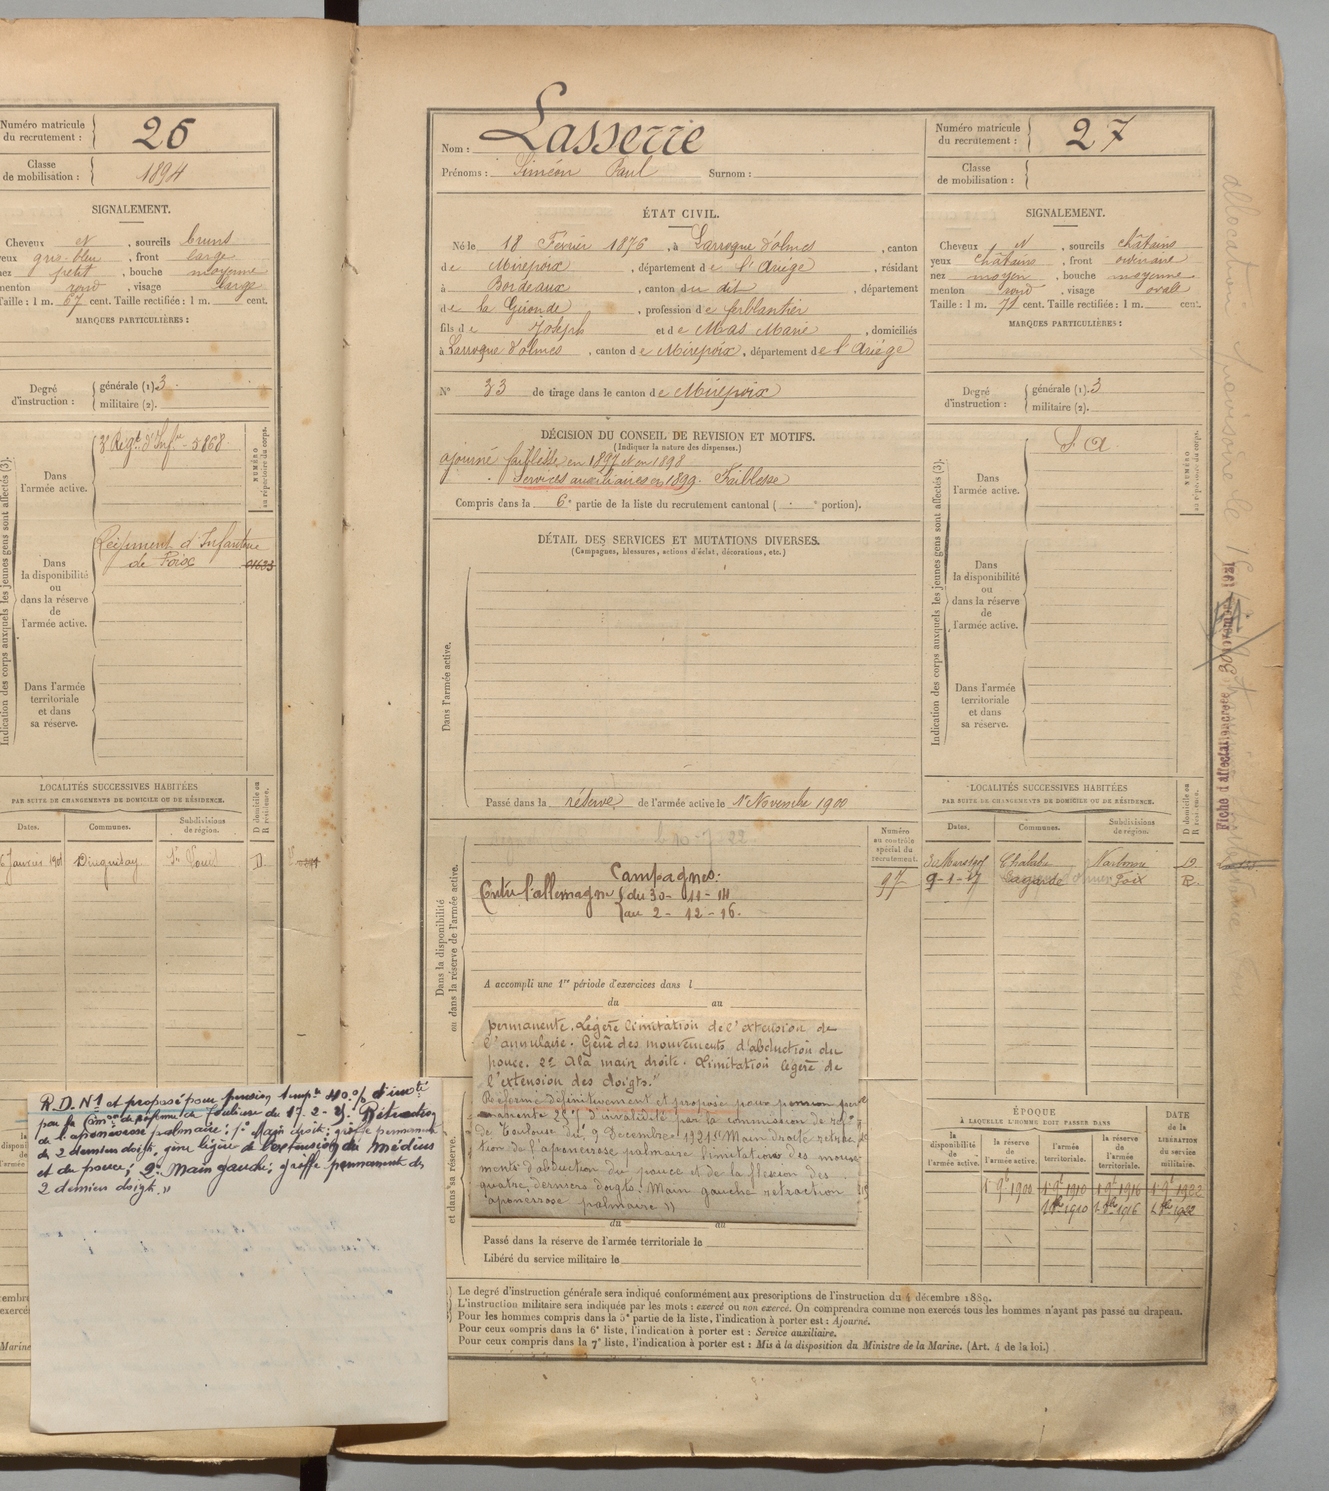 Numéro matricule
du recrutement :
26
Classe
de mobilisation :
1894
SIGNALEMENT.
Cheveux et , sourcils bruns
yeux gris-bleu , front large
nez petit , bouche moyenne
menton rond , visage large
Taille : 1 m. 67 cent. Taille rectifiée : 1 m. cent.
MARQUES PARTICULIÈRES :
Degré
d'instruction :
générale (1). 3
militaire (2).
Indication des corps auxquels les jeunes gens sont affectés (3).
Dans
l'armée active.
3e Régt d'Infie - 5868
NUMÉRO
au répertoire du corps.
Dans
la disponibilité
ou
dans la réserve
de
l'armée active.
Régiment d'Infanterie
de Foix
Dans l'armée
territoriale
et dans
sa réserve.
LOCALITÉS SUCCESSIVES HABITÉES
PAR SUITE DE CHANGEMENTS DE DOMICILE OU DE RÉSIDENCE.
D domicile ou
R résidence.
Dates.
Communes.
Subdivisions
de région.
Janvier 1901
D.
R. D. N°1 et proposé pour pension temp. 40 % d'invté
par la Comon de réforme de Toulouse du 17-2-25. Rétraction
de l'aponévrose palmaire; 1° Main droit; griffe permanente
des 2 derniers doigts, gêne légère de l'extension du Médius
et du pouce; 2° Main gauche; griffe permanente des
2 derniers doigts. »
Nom : Lasserre
Prénoms : Siméon Paul Surnom :
ÉTAT CIVIL.
Né le 18 Février 1876 , à Larroque d'olmes , canton
de Mirepoix , département de l'Ariège , résidant
à Bordeaux , canton du dit , département
de la Gironde , profession de ferblantier
fils de Joseph et de Mas Marie , domiciliés
à Larroque d'olmes , canton de Mirepoix , département de l'Ariège
N° 33 de tirage dans le canton de Mirepoix
DÉCISION DU CONSEIL DE REVISION ET MOTIFS.
(Indiquer la nature des dispenses.)
ajourné faiblesse en 1897 et en 1898
Services auxiliaires en 1899. Faiblesse
Compris dans la 6e partie de la liste du recrutement cantonal ( e portion).
DÉTAIL DES SERVICES ET MUTATIONS DIVERSES.
(Campagnes, blessures, actions d'éclat, décorations, etc.)
Dans l'armée active.
Passé dans la réserve de l'armée active le 1er Novembre 1900
Dans la disponibilité
ou dans la réserve de l'armée active.
Numéro
au contrôle
spécial du
recrutement.
97
Campagnes :
Contre l'allemagne { du 30-11-14
au 2-12-16.
A accompli une 1re période d'exercices dans l
du au
permanente. Légère limitation de l'extension de
l'annulaire. Gêne des mouvements d'abduction du
pouce. 2° à la main droite. Limitation légère de
l'extension des doigts."
Réformé définitivement et proposé pour pension per
manente 25 % d'invalidité par la commission de réf.
de Toulouse du 9 Décembre 1921 « Main droite rétrac
tion de l'aponévrose palmaire limitations des mouve
ments d'abduction du pouce et de la flexion des
quatre derniers doigts. Main gauche rétraction
aponévrose palmaire »
et dans sa réserve.
du au
Passé dans la réserve de l'armée territoriale le
Libéré du service militaire le
Numéro matricule
du recrutement :
27
Classe
de mobilisation :
SIGNALEMENT.
Cheveux et , sourcils châtains
yeux châtains , front ordinaire
nez moyen , bouche moyenne
menton rond , visage ovale
Taille : 1 m. 71 cent. Taille rectifiée : 1 m. cent.
MARQUES PARTICULIÈRES :
Degré
d'instruction :
générale (1). 3
militaire (2).
Indication des corps auxquels les jeunes gens sont affectés (3).
Dans
l'armée active.
S. A
NUMÉRO
au répertoire du corps.
Dans
la disponibilité
ou
dans la réserve
de
l'armée active.
Dans l'armée
territoriale
et dans
sa réserve.
LOCALITÉS SUCCESSIVES HABITÉES
PAR SUITE DE CHANGEMENTS DE DOMICILE OU DE RÉSIDENCE.
D domicile ou
R résidence.
Dates.
Communes.
Subdivisions
de région.
Chalabre Narbonne D
9-1-17 Lagarde Foix R.
ÉPOQUE
À LAQUELLE L'HOMME DOIT PASSER DANS
DATE
de la
LIBÉRATION
du service
militaire.
la
disponibilité
de l'armée active.
la réserve
de
l'armée active.
l'armée
territoriale.
la réserve
de
l'armée
territoriale.
1er 9e 1900 1er 9e 1910 1er 9e 1916 1er 9e 1922
1er 8bre 1910 1er 8bre 1916 1er 8bre 1922
Le degré d'instruction générale sera indiqué conformément aux prescriptions de l'instruction du 4 décembre 1889.
L'instruction militaire sera indiquée par les mots : exercé ou non exercé. On comprendra comme non exercés tous les hommes n'ayant pas passé au drapeau.
Pour les hommes compris dans la 5e partie de la liste, l'indication à porter est : Ajourné.
Pour ceux compris dans la 6e liste, l'indication à porter est : Service auxiliaire.
Pour ceux compris dans la 7e liste, l'indication à porter est : Mis à la disposition du Ministre de la Marine. (Art. 4 de la loi.)
allocation provisoire
Fiche d'affectation créée